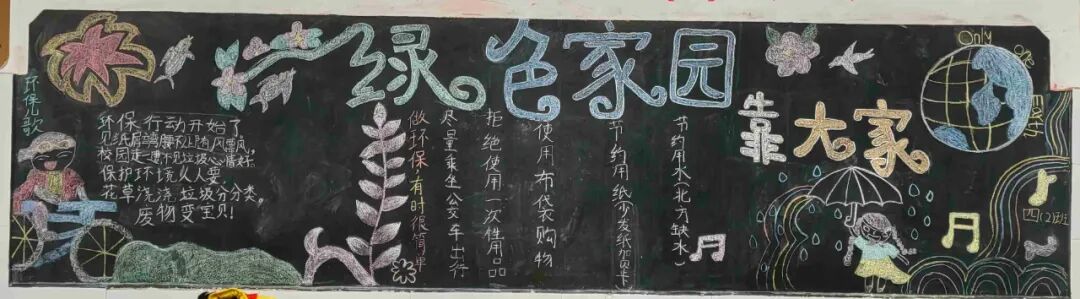 绿色家园
靠大家
环保儿歌
环保行动开始了
校园走一走不见垃圾心情好
保护环境人人要
花草浇浇垃圾分分类，
废物变宝贝！
做环保，有时很简单
尽量乘坐公交车出行
拒绝使用一次性用品
使用布袋购物
节约用纸（少发纸贺卡）
节约用水（北方缺水）
Only one Earth
四(2)班